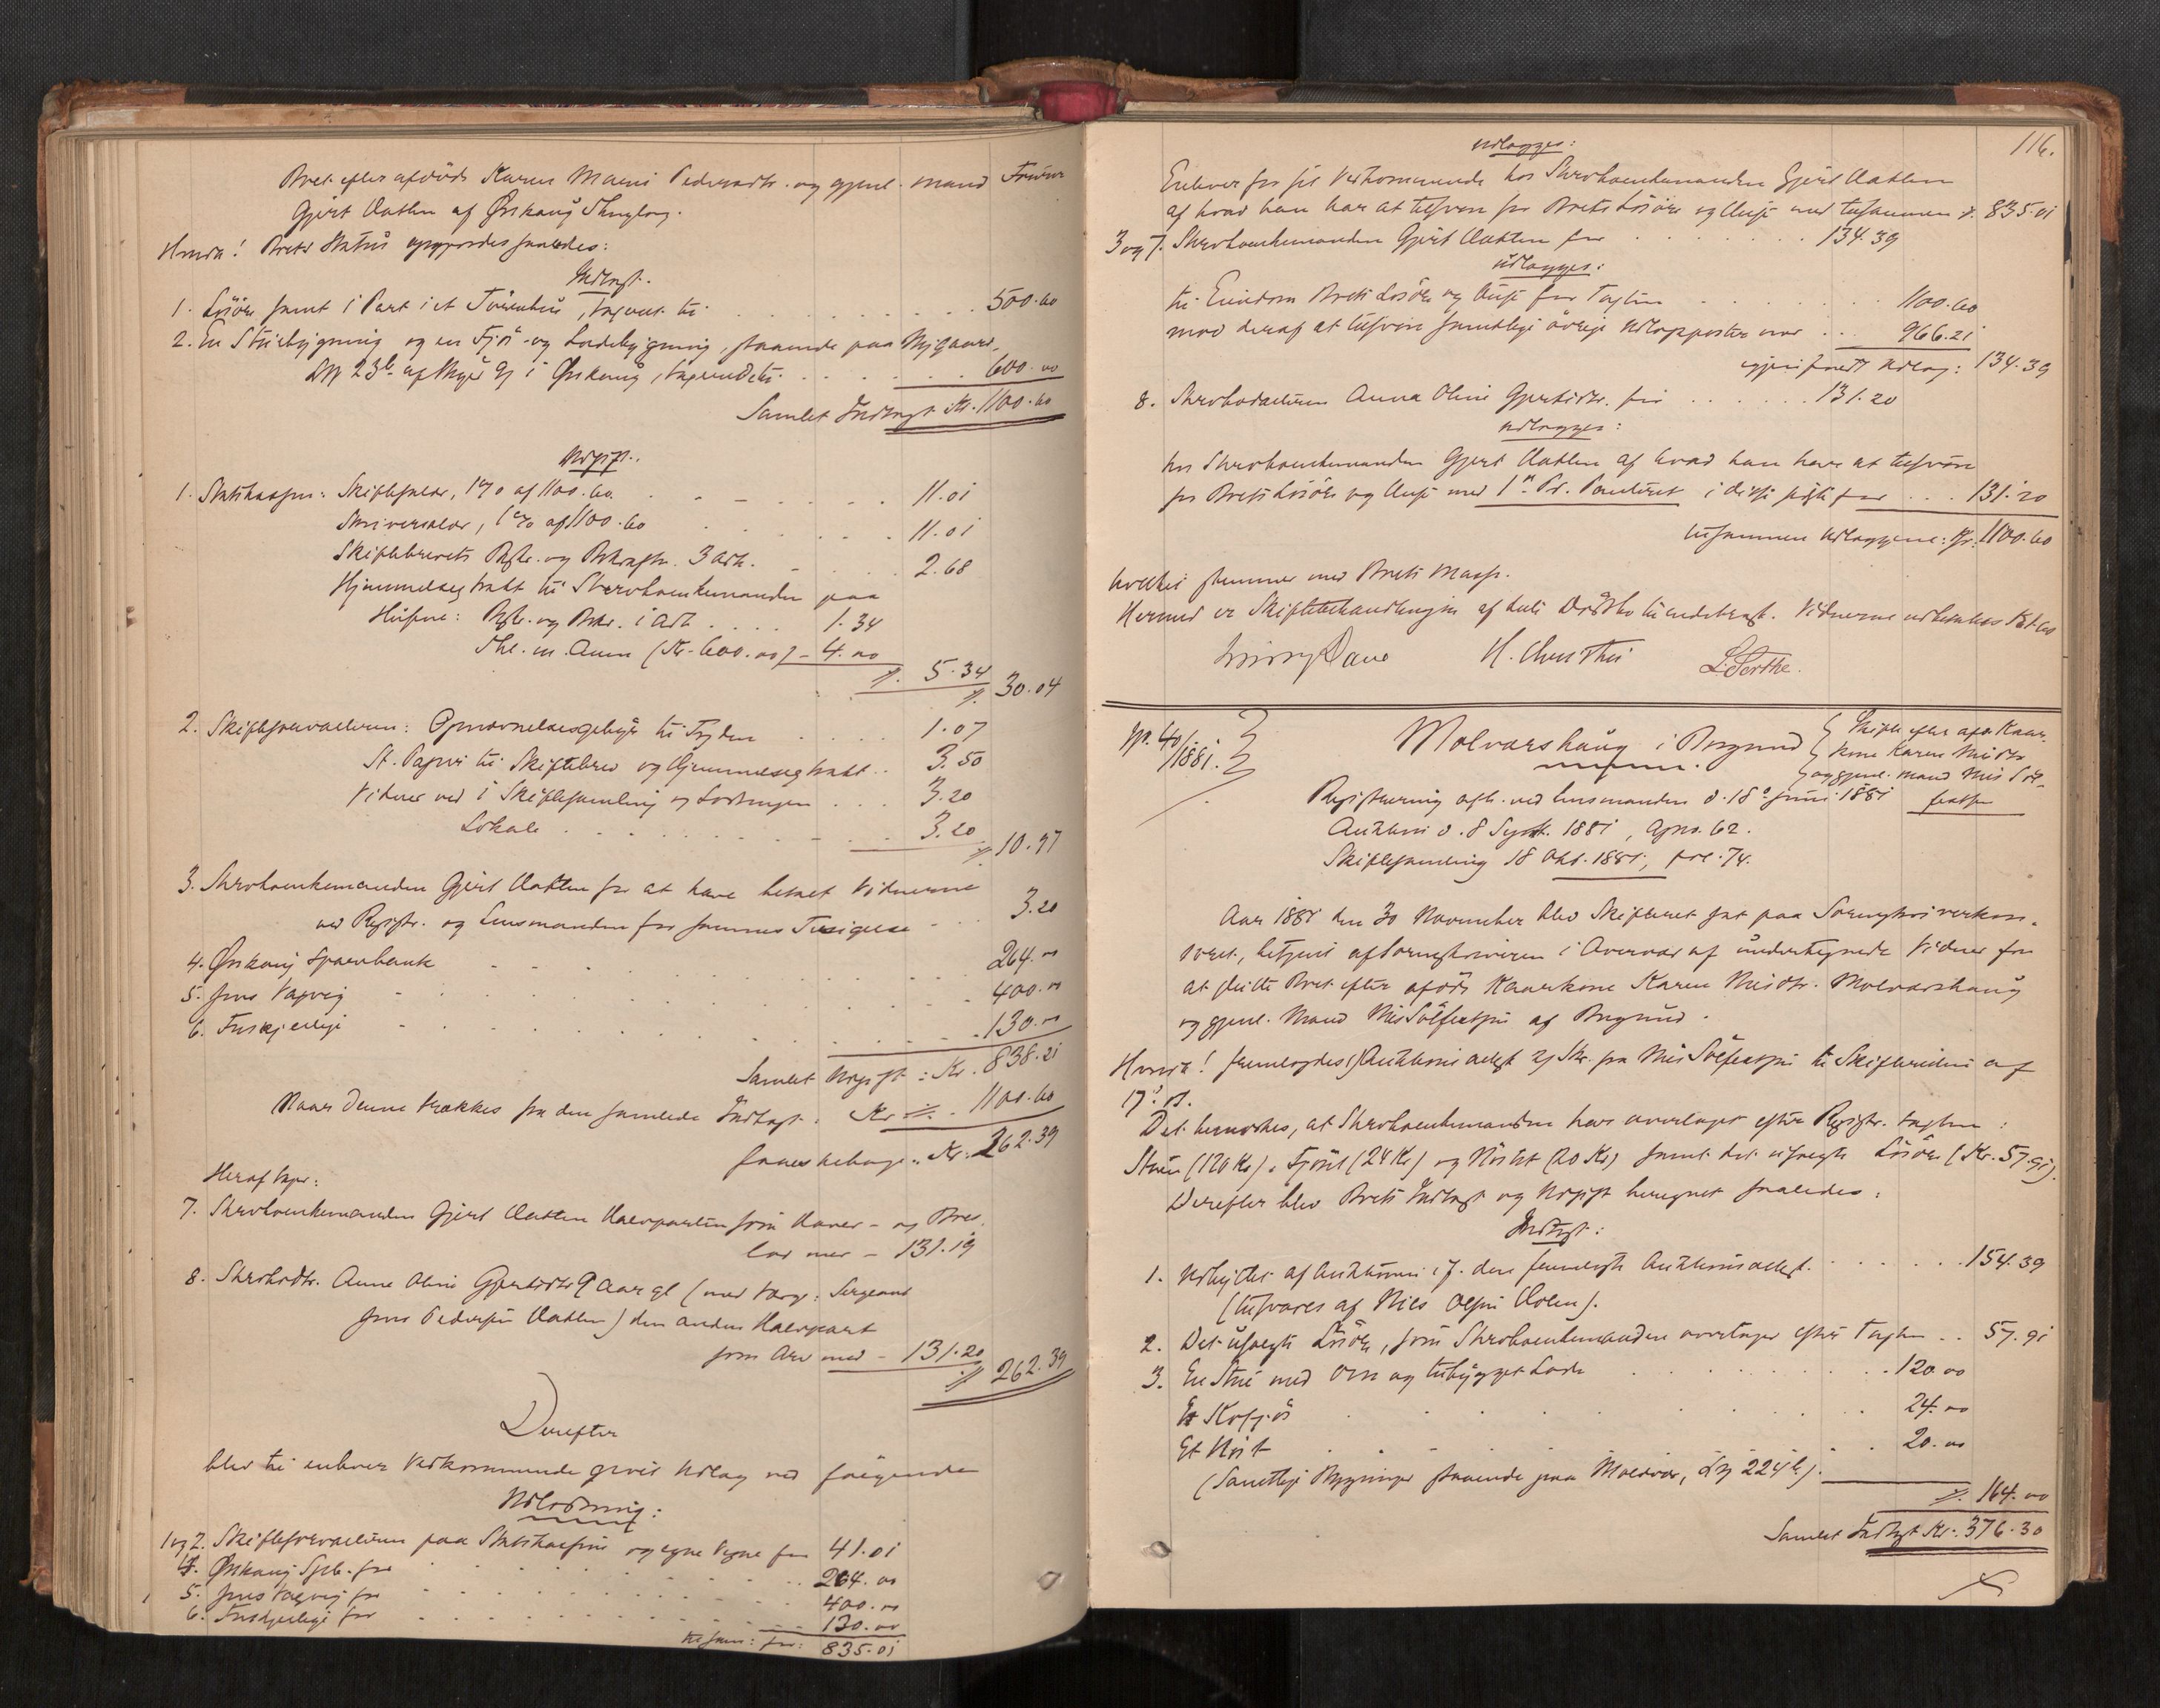 Boet efter afdöde Karen Marie Pedersdtr. og gjenl. mand
Gjert Aatlen af Ørskoug Thinglag.
Hvorda! Boets Status opgjordes saaledes:
Indtægt.
1. Lösöre samt 1 Part i et , taxeret til . . . 500.60
2. En Stuebygning og en Fjös- og Ladebygning, staaende paa Nygaard,
i Ørskoug, taxerede til . . . 600.00
Samlet Indtægt Kr. 1100.60
Udgift.
1. Statskassen: Skiftesalær, 1% af 1100.60 . . . 11.01
Skriversalær, 1% af 1100.60 . . . 11.01
Skiftebrevets og 3 Ark. . . . 2.68
Hjemmelsextrakt til Sterboenkemanden paa
Husene: 1 Ark . . . 1.34
(Kr. 600.00) - 4.00
5.34
30.04
2. Skifteforvalteren: Opnævnelsesgebyr til Fogden . . . 1.07
St. Papir til Skiftebrev og Hjemmelsextrakt . . 3.50
Vidner ved 1 Skiftesamling og . . . 3.20
Lokale . . . 3.20
10.97
3. Sterboenkemanden Gjert Aatlen for at have betalt Vidnerne
ved Registr. og Lensmanden for sammes Tilsigelse . . . 3.20
4. Ørskoug Sparebank . . . 264.00
5. Jens Vagvig . . . 400.00
6. . . . 130.00
Samlet Udgift: Kr. 838.21
Naar denne trækkes fra den samlede Indtægt: Kr. 1100.60
faaes tilbage: Kr. 262.39
Heraf tager:
7. Sterboenkemanden Gjert Aatlen Halvparten som Hoved- og Bros-
lod med - 131.19
8. Sterbodtr. Anne Oline Gjertsdtr 9 Aar gl (med Værge: Sergeant
Jens Pedersen Aatlen) den anden Halvpart
som Arv med - 131.20
262.39
Derefter
blev til enhver Vedkommende givet Udlæg ved følgende
Udlodning:
1 og 2. Skifteforvalteren paa Statskassens og egne Vegne for 41.01
4. Ørskoug Spb. for . . . 264.00
5. Jens Vagvig for . . . 400.00
6. for . . . 130.00
tilsam: for: 835.01
116.
udlægges:
Enhver for sit Vedkommende hos Sterboenkemanden Gjert Aatlen
af hvad han har at tilsvare for Boets Lösöre og Huse med tilsammen 835.01
3 og 7. Sterboenkemanden Gjert Aatlen for . . . 134.39
udlægges:
til Eiendom Boets Lösöre og Huse for Taxten . . . 1100.60
mod deraf at tilsvare samtlige övrige Udlægsposter med . . . 966.21
Udlæg: 134.39
8. Sterbodatteren Anna Oline Gjertsdtr. for . . . 131.20
udlægges:
hos Sterboenkemanden Gjert Aatlen af hvad han har at tilsvare
for Boets Lösöre og Huse med 1ste Pr. Panteret i disse . . . 131.20
tilsammen udlæggene: Kr. 1100.60
hvilket stemmer med Boets Masse.
Hermed er Skiftebehandlingen af dette Dödsbo tilendebragt. Vidnerne
H. Christie
L. Sorthe.
No. 40/1881.
Molværshaug i Borgund
Skifte efter afd. Kaar-
kone Karen Nilsdtr
og gjenl. mand Nils Söl-
festsen
Registrering afh. ved Lensmanden d. 18de Juni 1881
Auktion d. 8 Septb. 1881, 62.
Skiftesamling 18 Okt. 1881, fol. 74.
Aar 1881 den 30 November blev Skifteret sat paa Sorenskriverkon-
toret, betjent af Sorenskriveren i Overvær af undertegnede Vidner for
at slutte Boet efter afdöde Kaarkone Karen Nilsdtr. Molværshaug
og gjenl. Mand Nils Sölfestsen af Borgund.
Hvorda! fremlagdes 1) Auktions 2) Skr. fra Nils Sölfestsen til Skifteretten af
17de ds.
Det bemærkes, at Sterboenkemanden har overtaget efter Registr. taxten:
Stuen (120 Kr), Fjöset (24 Kr) og Nöstet (20 Kr) samt det usolgte Lösöre (Kr. 57.91).
Derefter blev Boets Indtægt og Udgift beregnet saaledes:
Indtægt:
1. Udbyttet af Auktionen i f. den fremlagte . . . 154.39
(tilsvares af Nils Olsen Aolen).
2. Det usolgte Lösöre, som Sterboenkemanden overtager efter Taxten . . 57.91
3. En Stue med Ovn og tilbygget Lade . . . 120.00
Et Kofjös . . . 24.00
Et Nöst . . . 20.00
(Samtlige Bygninger staaende paa Molvær, ).
164.00
Samlet Indtægt Kr. 376.30